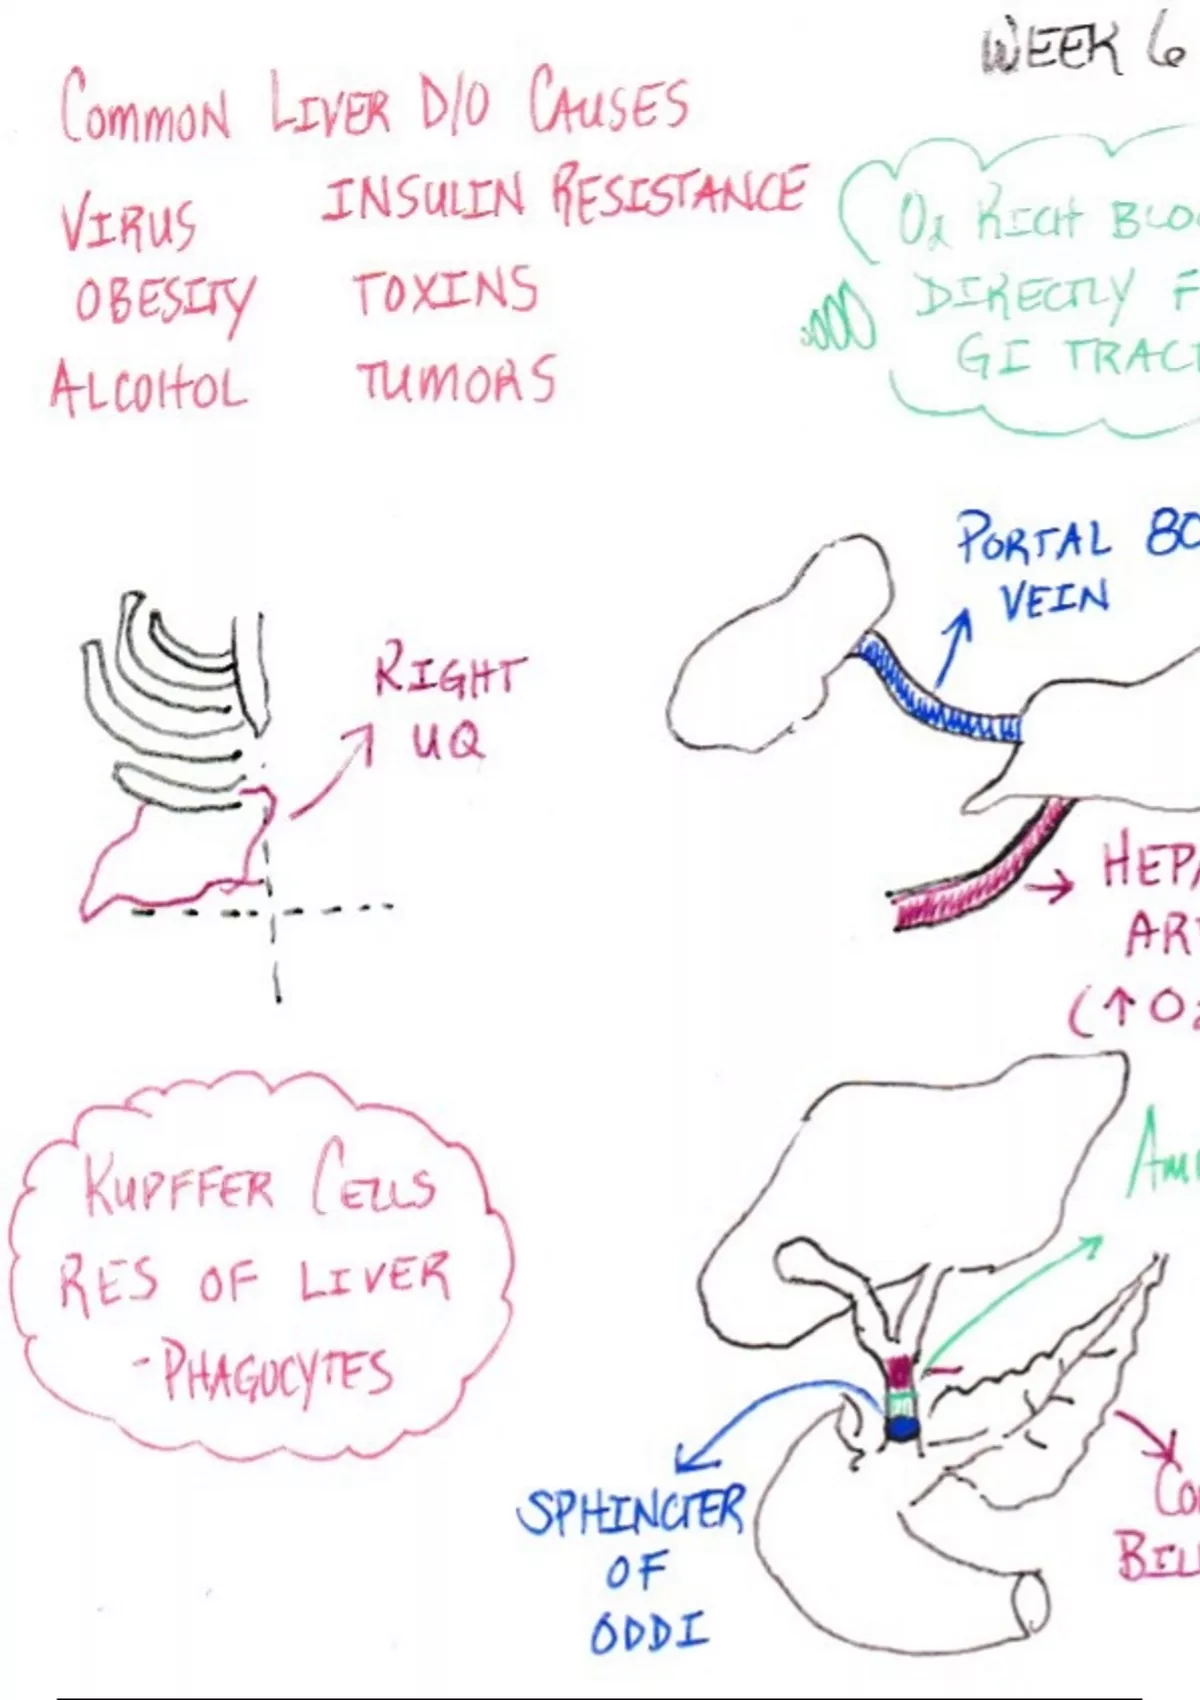 WEEK 6
COMMON LIVER D/O CAUSES
VIRUS INSULIN RESISTANCE
OBESITY TOXINS
ALCOHOL TUMORS
O2 RICH BLOO
DIRECTLY F
GI TRACT
PORTAL 80
VEIN
RIGHT
UQ
HEPA
ART
(↑O2
KUPFFER CELLS
RES OF LIVER
-PHAGOCYTES
AM
SPHINCTER
OF
ODDI
CO
BIL